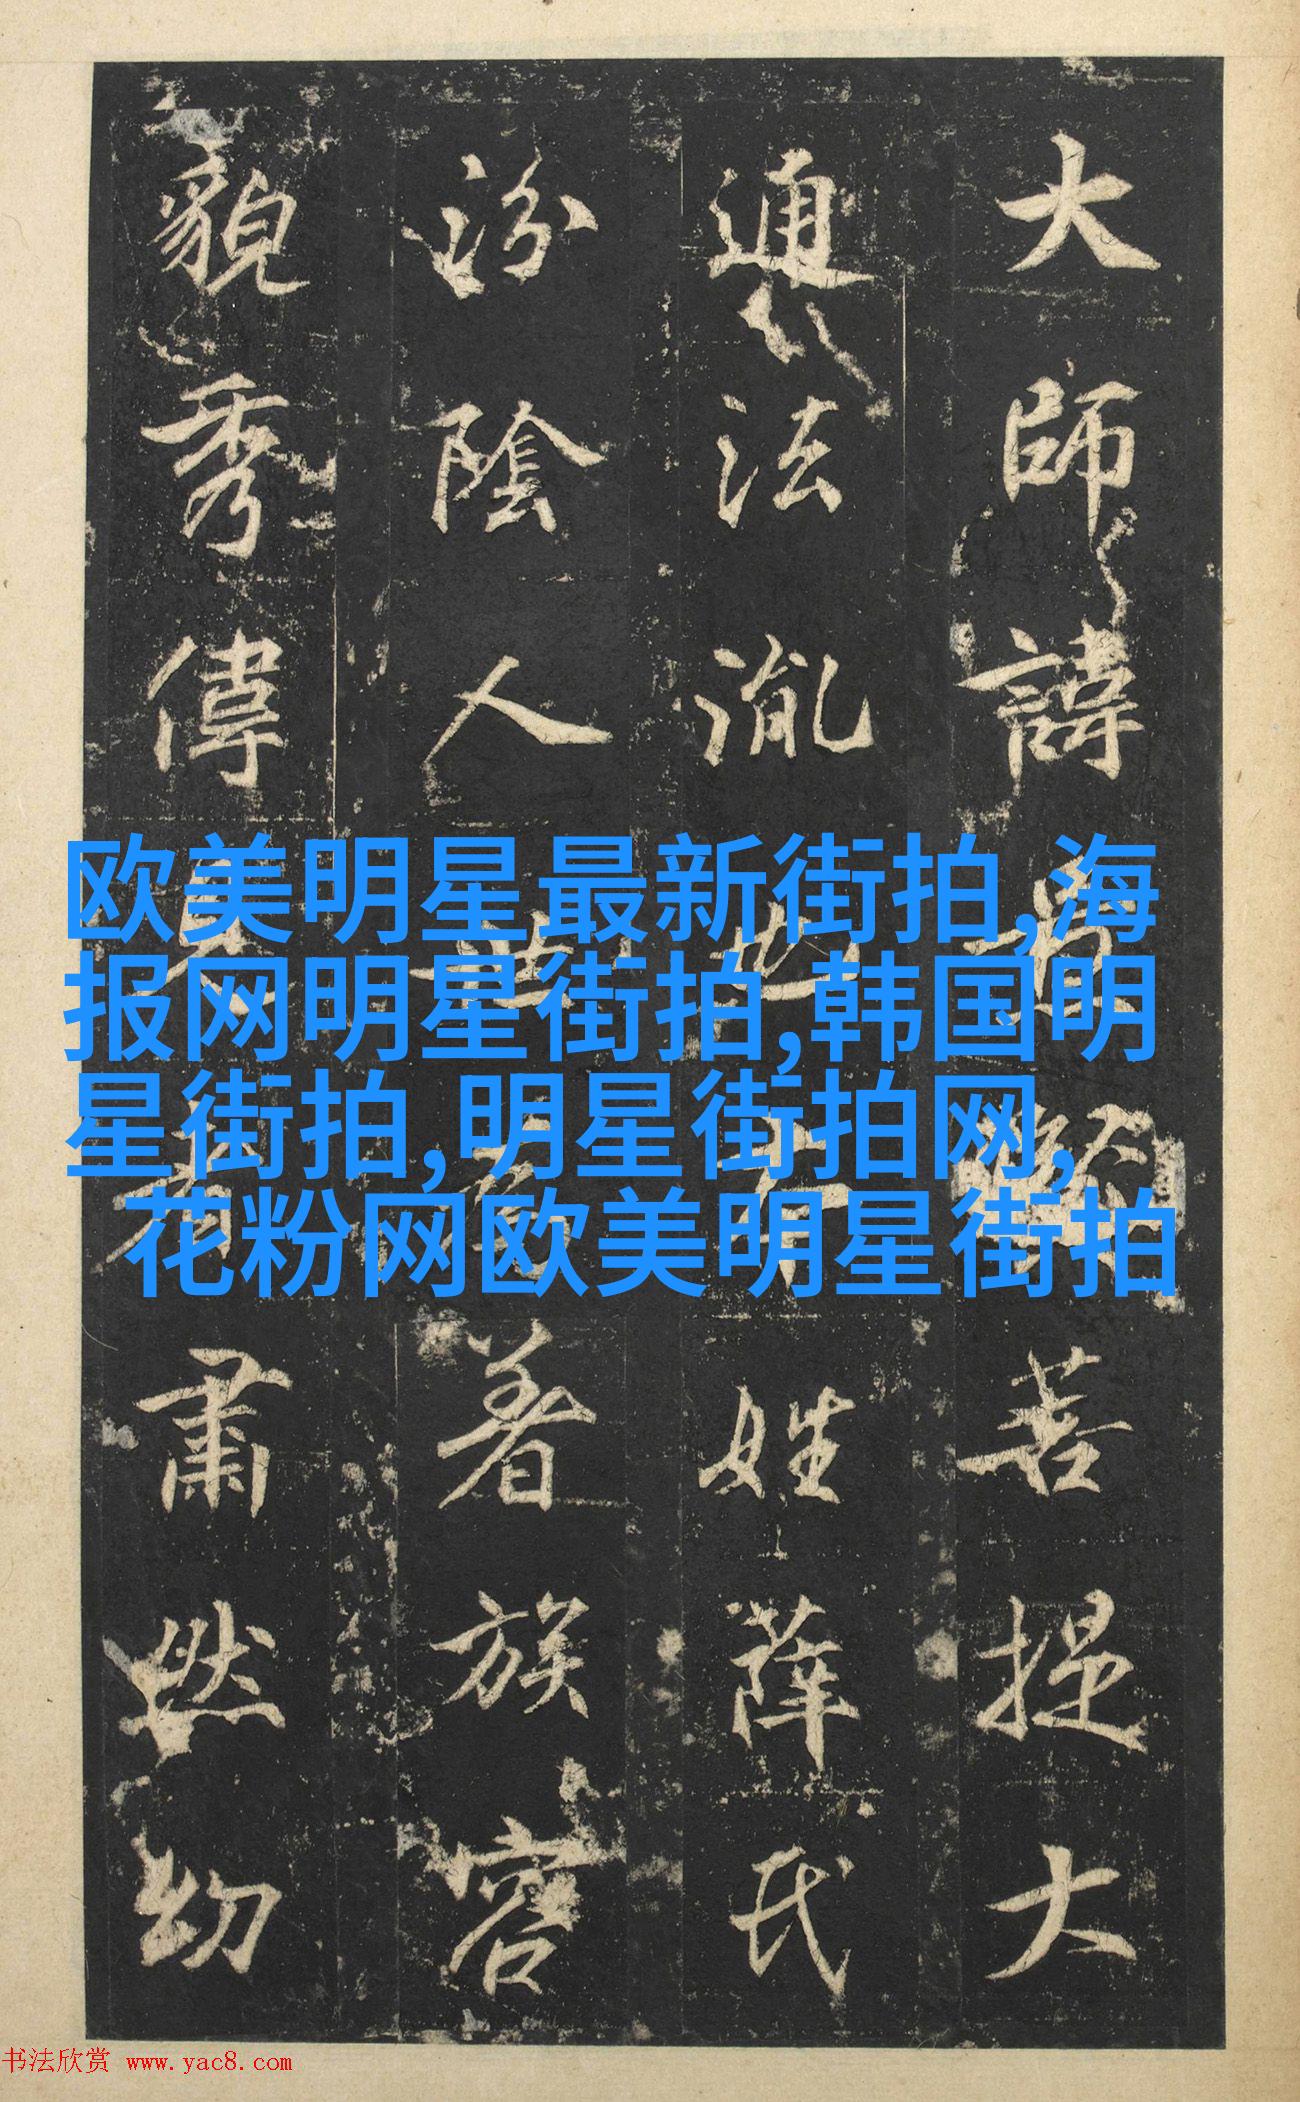 大師諱菩提大
通法胤也姓薛氏
汾陰人世為著族容
貌秀偉見者肅然幼
欧美明星最新街拍,海
报网明星街拍,韩国明
星街拍,明星街拍网,
花粉网欧美明星街拍
书法欣赏 www.yac8.com